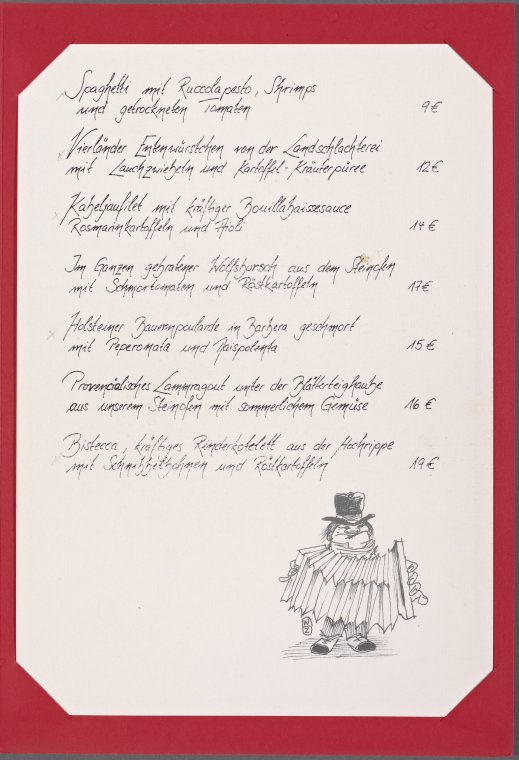 Spaghetti mit Ruccolapesto, Shrimps
und getrockneten Tomaten 9 €
Vierländer Entenwürstchen von der Landschlachterei
mit Lauchzwiebeln und Kartoffel-Kräuterpüree 12 €
Kabeljaufilet mit kräftiger Bouillabaissesauce
Rosmarinkartoffeln und Aioli 14 €
Im Ganzen gebratener Wolfsbarsch aus dem Steinofen
mit Schmortomaten und Röstkartoffeln 17 €
Holsteiner Bauernpoularde in Barbera geschmort
mit Peperonata und Maispolenta 15 €
Provencialisches Lammragout unter der Blätterteighaube
aus unserem Steinofen mit sommerlichem Gemüse 16 €
Bistecca, kräftiges Rinderkotelett aus der Hochrippe
mit Schnibbelbohnen und Röstkartoffeln 19 €